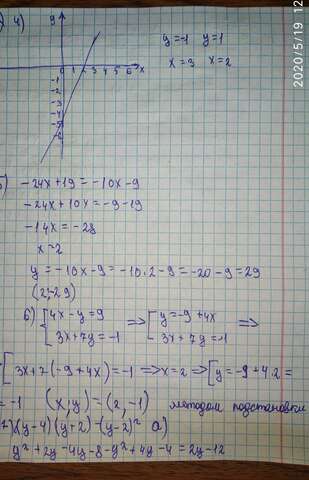 4) y
y=-1 y=1
x=3 x=2
0 1 2 3 4 5 6 x
-1
-2
-3
-4
-5
-6
2020/5/19 12
-24x+19=-10x-9
-24x+10x=-9-19
-14x=-28
x=2
y=-10x-9=-10·2-9=-20-9=29
(2;-29)
6) {4x-y=9 => [y=-9+4x =>
3x+7y=-1 3x+7y=-1
[3x+7(-9+4x)=-1 => x=2 => [y=-9+4·2=
=-1 (x,y)=(2,-1) методом подстановки
7) (y-4)(y+2)-(y-2)² а)
y²+2y-4y-8-y²+4y-4=2y-12